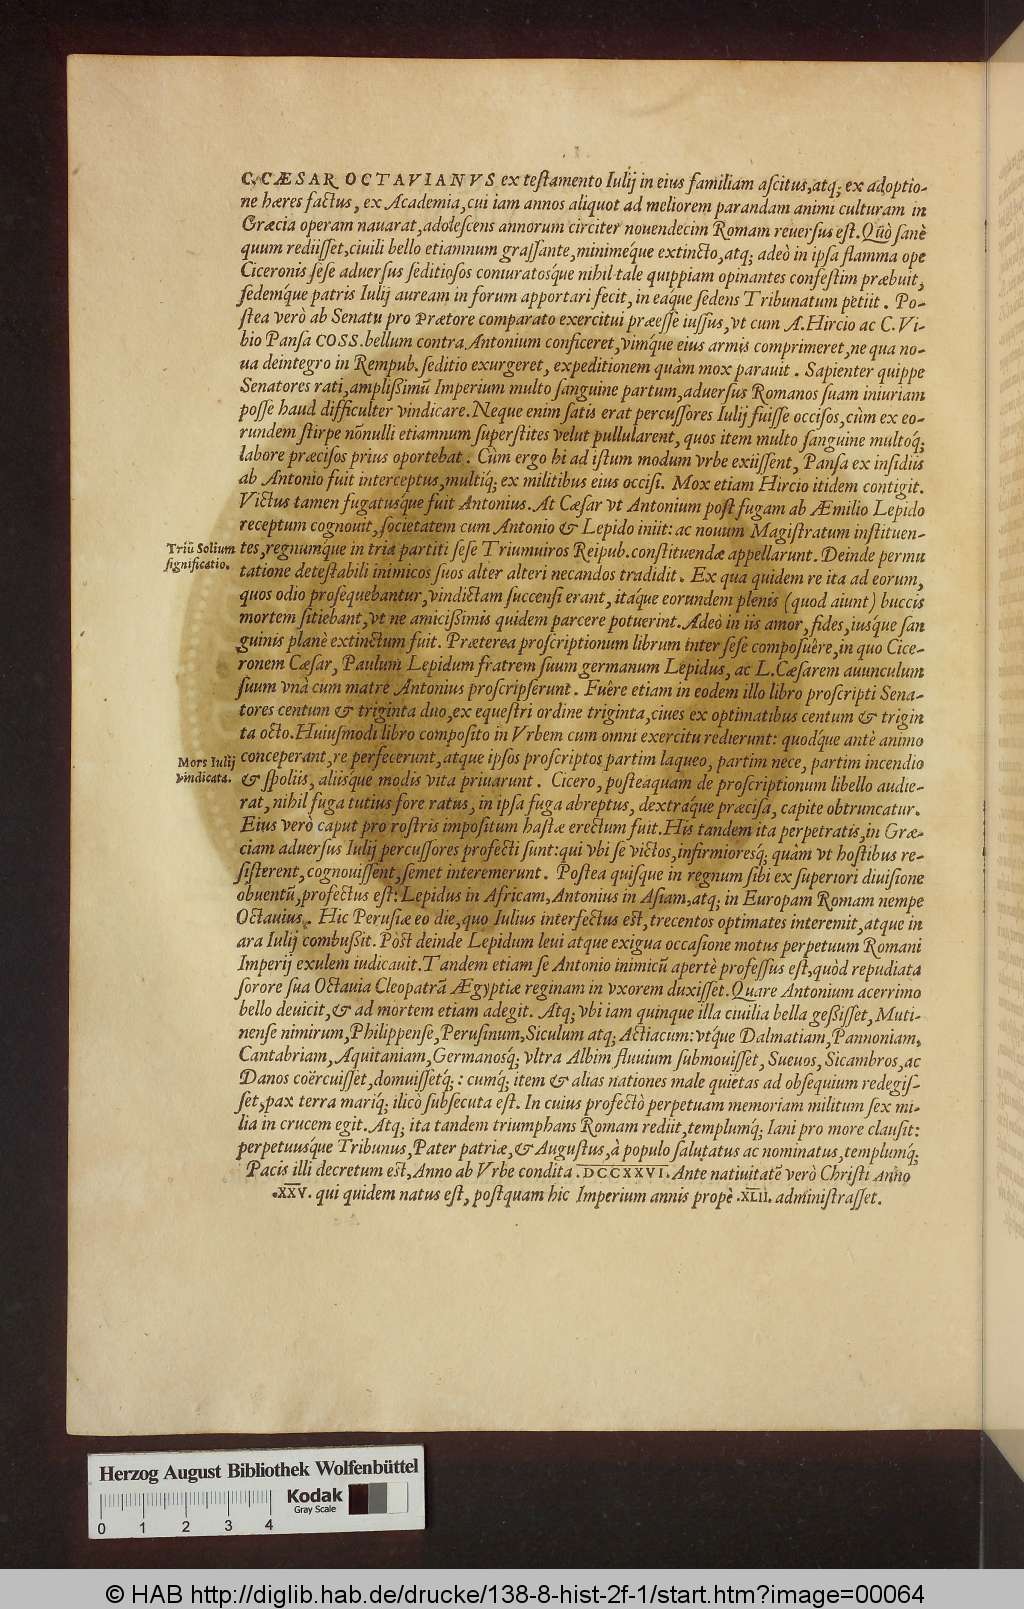 C. CÆSAR OCTAVIANVS ex teſtamento Iulij in eius familiam aſcitus, atq; ex adoptio-
ne hæres factus, ex Academia, cui iam annos aliquot ad meliorem parandam animi culturam in
Græcia operam nauarat, adoleſcens annorum circiter nouendecim Romam reuerſus eſt. Quò ſanè
quum redijſſet, ciuili bello etiamnum graſſante, minimeq́ue extincto, atq; adeò in ipſa flamma ope
Ciceronis ſeſe aduerſus ſeditioſos coniuratosq́ue nihil tale quippiam opinantes confeſtim præbuit,
ſedemq́ue patris Iulij auream in forum apportari fecit, in eaque ſedens Tribunatum petiit. Po-
ſtea verò ab Senatu pro Prætore comparato exercitui præeſſe iuſſus, vt cum A. Hircio ac C. Vi-
bio Panſa COSS. bellum contra Antonium conficeret, vimq́ue eius armis comprimeret, ne qua no-
ua deintegro in Rempub. ſeditio exurgeret, expeditionem quàm mox parauit. Sapienter quippe
Senatores rati, ampliſſimũ Imperium multo ſanguine partum, aduerſus Romanos ſuam iniuriam
poſſe haud difficulter vindicare. Neque enim ſatis erat percuſſores Iulij fuiſſe occiſos, cùm ex eo-
rundem ſtirpe nõnulli etiamnum ſuperſtites velut pullularent, quos item multo ſanguine multoq́;
labore præciſos prius oportebat. Cùm ergo hi ad iſtum modum vrbe exiiſſent, Panſa ex inſidijs
ab Antonio fuit interceptus, multiq́; ex militibus eius occiſi. Mox etiam Hircio itidem contigit.
Victus tamen fugatusq́ue fuit Antonius. At Cæſar vt Antonium poſt fugam ab Æmilio Lepido
receptum cognouit, ſocietatem cum Antonio & Lepido iniit: ac nouum Magiſtratum inſtituen-
Triũ Solium
ſignificatio.
tes, regnumq́ue in tria partiti ſeſe Triumuiros Reipub. conſtituendæ appellarunt. Deinde permu
tatione deteſtabili inimicos ſuos alter alteri necandos tradidit. Ex qua quidem re ita ad eorum,
quos odio proſequebantur, vindictam ſuccenſi erant, itaq́ue eorundem plenis (quod aiunt) buccis
mortem ſitiebant, vt ne amiciſſimis quidem parcere potuerint. Adeò in iis amor, fides, iusq́ue ſan
guinis planè extinctum fuit. Præterea proſcriptionum librum inter ſeſe compoſuêre, in quo Cice-
ronem Cæſar, Paulum Lepidum fratrem ſuum germanum Lepidus, ac L. Cæſarem auunculum
ſuum vnà cum matre Antonius proſcripſerunt. Fuêre etiam in eodem illo libro proſcripti Sena-
tores centum & triginta duo, ex equeſtri ordine triginta, ciues ex optimatibus centum & trigin
ta octo. Huiuſmodi libro compoſito in Vrbem cum omni exercitu redierunt: quodq́ue antè animo
Mors Iulij
vindicata.
conceperant, re perfecerunt, atque ipſos proſcriptos partim laqueo, partim nece, partim incendio
& ſpoliis, aliisq́ue modis vita priuarunt. Cicero, poſteaquam de proſcriptionum libello audie-
rat, nihil fuga tutius fore ratus, in ipſa fuga abreptus, dextraq́ue præciſa, capite obtruncatur.
Eius verò caput pro roſtris impoſitum haſtæ erectum fuit. His tandem ita perpetratis, in Græ-
ciam aduerſus Iulij percuſſores profecti ſunt: qui vbi ſe victos, infirmioresq́; quàm vt hoſtibus re-
ſiſterent, cognouiſſent, ſemet interemerunt. Poſtea quiſque in regnum ſibi ex ſuperiori diuiſione
obuentũ, profectus eſt: Lepidus in Africam, Antonius in Aſiam, atq; in Europam Romam nempe
Octauius. Hic Peruſiæ eo die, quo Iulius interfectus eſt, trecentos optimates interemit, atque in
ara Iulij combuſſit. Pòſt deinde Lepidum leui atque exigua occaſione motus perpetuum Romani
Imperij exulem iudicauit. Tandem etiam ſe Antonio inimicũ apertè profeſſus eſt, quòd repudiata
ſorore ſua Octauia Cleopatrã Ægyptiæ reginam in vxorem duxiſſet. Quare Antonium acerrimo
bello deuicit, & ad mortem etiam adegit. Atq; vbi iam quinque illa ciuilia bella geſſiſſet, Muti-
nenſe nimirum, Philippenſe, Peruſinum, Siculum atq; Actiacum: vtq́ue Dalmatiam, Pannoniam,
Cantabriam, Aquitaniam, Germanosq́; vltra Albim fluuium ſubmouiſſet, Sueuos, Sicambros, ac
Danos coërcuiſſet, domuiſſetq́;: cumq́; item & alias nationes male quietas ad obſequium redegiſ-
ſet, pax terra mariq́; ilicò ſubſecuta eſt. In cuius profectò perpetuam memoriam militum ſex mi-
lia in crucem egit. Atq; ita tandem triumphans Romam rediit, templumq́; Iani pro more clauſit:
perpetuusq́ue Tribunus, Pater patriæ, & Auguſtus, à populo ſalutatus ac nominatus, templumq́;
Pacis illi decretum eſt, Anno ab Vrbe condita .DCCXXVI. Ante natiuitatẽ verò Chriſti Anno
.XXV. qui quidem natus eſt, poſtquam hic Imperium annis propè .XLII. adminiſtraſſet.
Herzog August Bibliothek Wolfenbüttel
Kodak
Gray Scale
0 1 2 3 4
© HAB http://diglib.hab.de/drucke/138-8-hist-2f-1/start.htm?image=00064